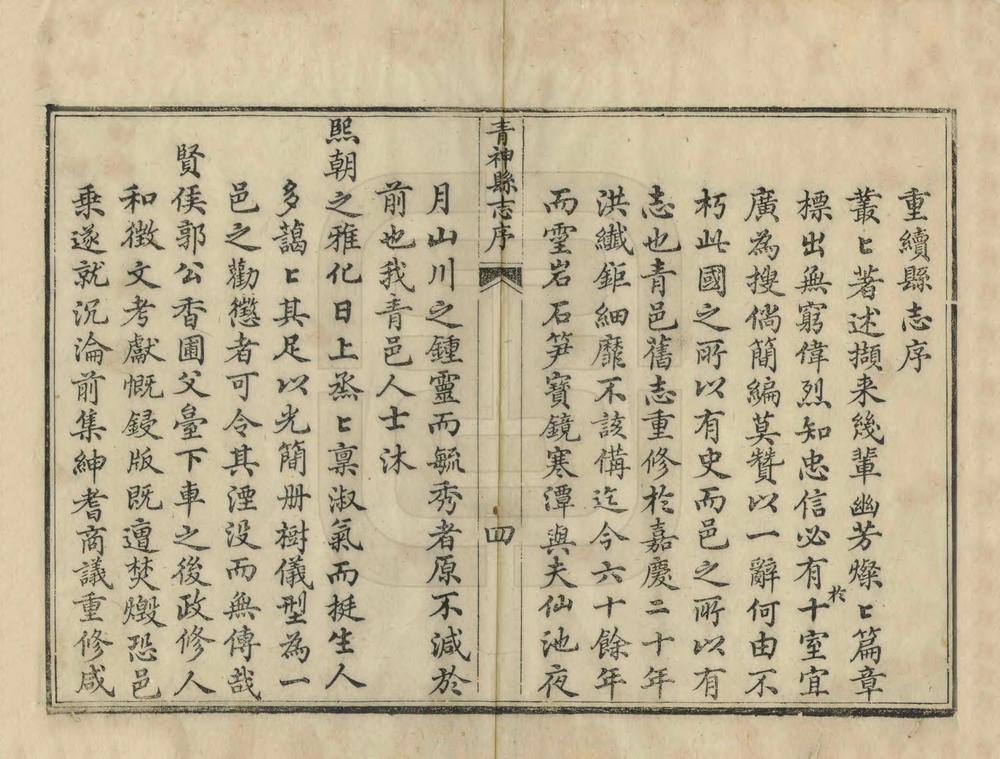 重續縣志序
叢〻著述擷來幾輩幽芳燦〻篇章
標出無窮偉烈知忠信必有於十室宜
廣為搜倘簡編莫贊以一辭何由不
朽此國之所以有史而邑之所以有
志也青邑舊志重修於嘉慶二十年
洪纖鉅細靡不該備迄今六十餘年
而雲岩石笋寶鏡寒潭與夫仙池夜
青神縣志序
四
月山川之鍾靈而毓秀者原不減於
前也我青邑人士沐
熙朝之雅化日上烝〻稟淑氣而挺生人
多藹〻其足以光簡册樹儀型為一
邑之勸懲者可令其湮没而無傳哉
賢侯郭公香圃父臺下車之後政修人
和徵文考獻慨鋟版既遭焚燬恐邑
乘遂就沉淪前集紳耆商議重修咸